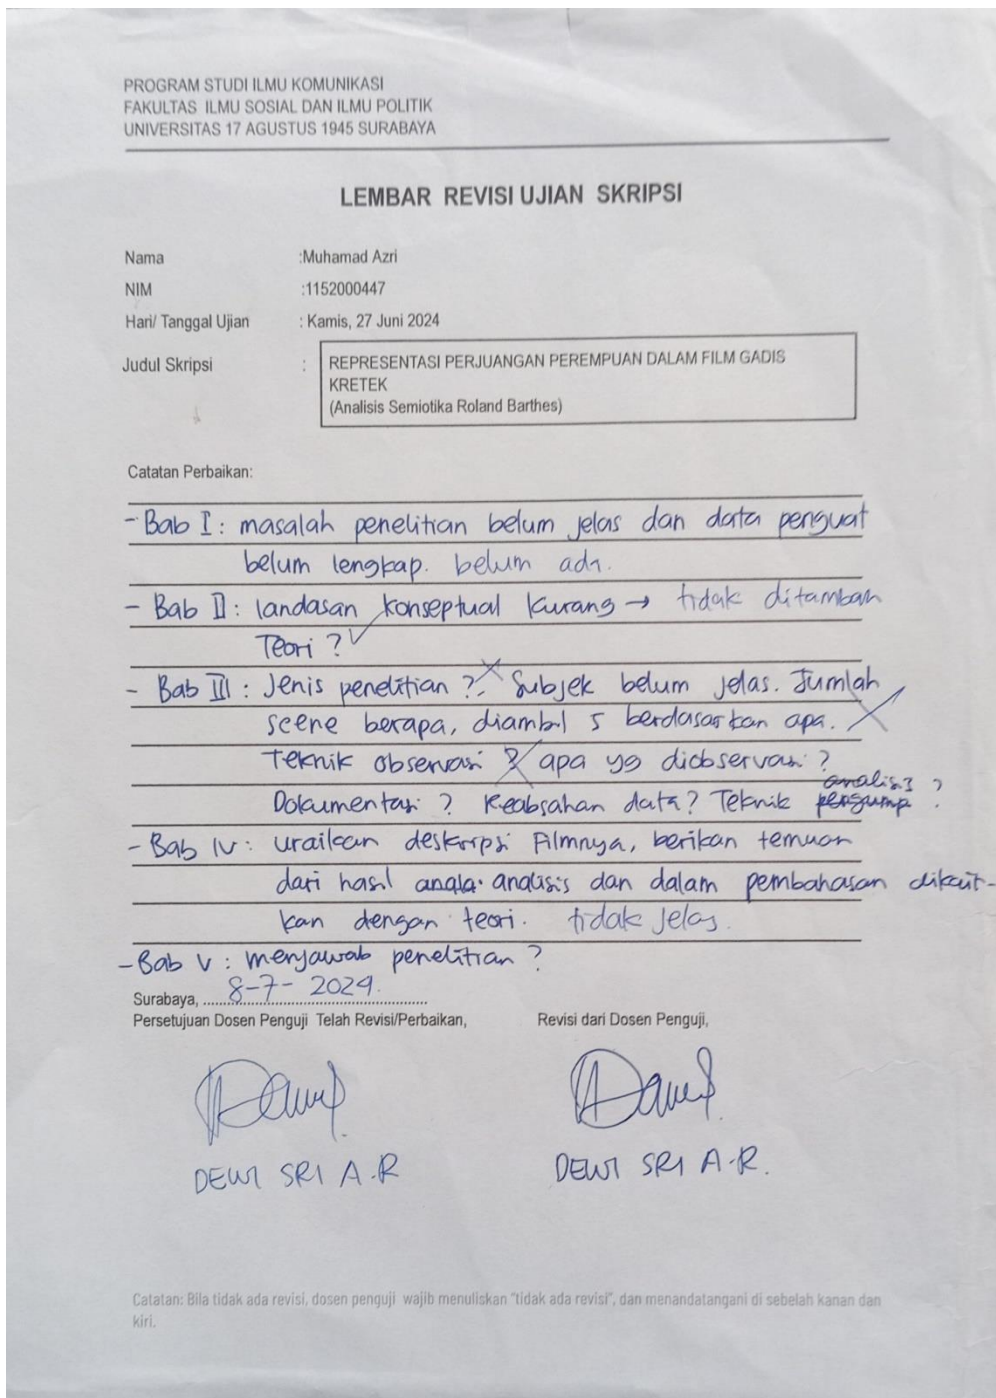 PROGRAM STUDI ILMU KOMUNIKASI
FAKULTAS ILMU SOSIAL DAN ILMU POLITIK
UNIVERSITAS 17 AGUSTUS 1945 SURABAYA
LEMBAR REVISI UJIAN SKRIPSI
Nama :Muhamad Azri
NIM :1152000447
Hari/ Tanggal Ujian : Kamis, 27 Juni 2024
Judul Skripsi : REPRESENTASI PERJUANGAN PEREMPUAN DALAM FILM GADIS
KRETEK
(Analisis Semiotika Roland Barthes)
Catatan Perbaikan:
- Bab I : masalah penelitian belum jelas dan data penguat
belum lengkap. belum ada.
- Bab II : landasan konseptual kurang → tidak ditambah
Teori ?
- Bab III : Jenis penelitian ? Subjek belum jelas. Jumlah
scene berapa, diambil 5 berdasarkan apa.
Teknik observasi ? apa yg diobservasi ?
Dokumentasi ? Keabsahan data? Teknik pengump analisis ?
- Bab IV : uraikan deskripsi Filmnya, berikan temuan
dari hasil anala. analisis dan dalam pembahasan dikait-
kan dengan teori. tidak jelas.
- Bab V : menjawab penelitian ?
Surabaya, 8-7-2024.
Persetujuan Dosen Penguji Telah Revisi/Perbaikan, Revisi dari Dosen Penguji,
DEWI SRI A.R DEWI SRI A.R.
Catatan: Bila tidak ada revisi, dosen penguji wajib menuliskan "tidak ada revisi", dan menandatangani di sebelah kanan dan
kiri.